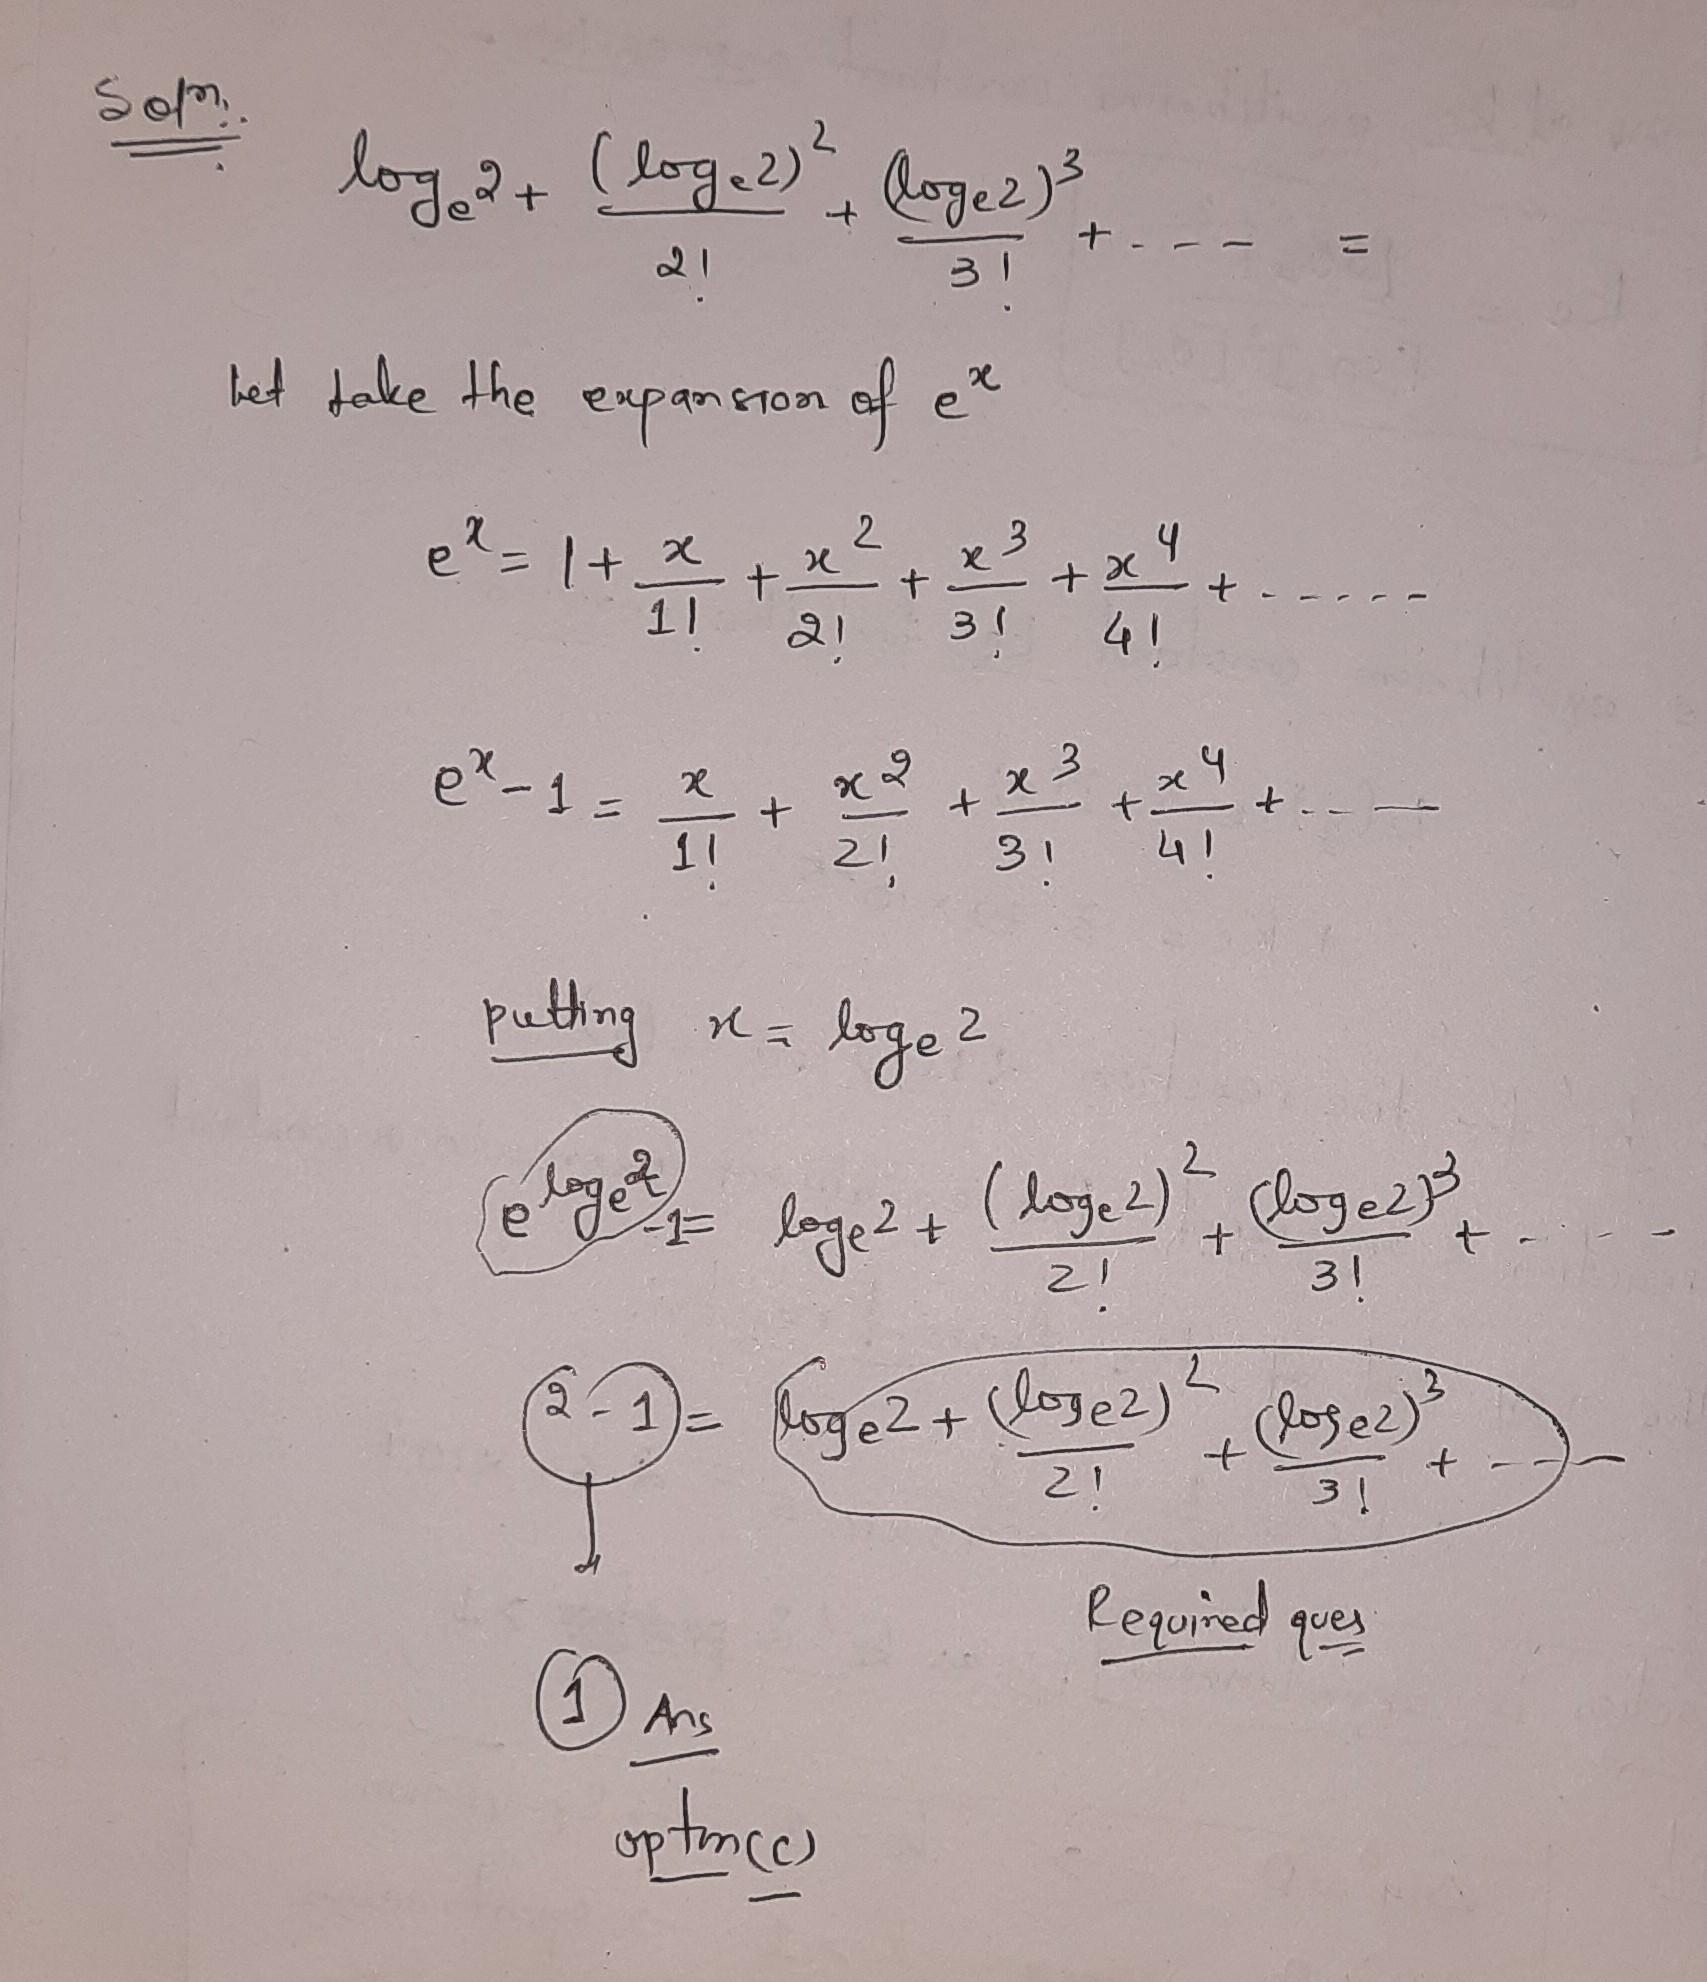 Soln:
log_e 2 + (log_e 2)^2/2! + (log_e 2)^3/3! + ---- =
Let take the expansion of e^x
e^x = 1 + x/1! + x^2/2! + x^3/3! + x^4/4! + -----
e^x - 1 = x/1! + x^2/2! + x^3/3! + x^4/4! + ----
putting x = log_e 2
e^(log_e 2) - 1 = log_e 2 + (log_e 2)^2/2! + (log_e 2)^3/3! + ----
2 - 1 = log_e 2 + (log_e 2)^2/2! + (log_e 2)^3/3! + ----
Required ques
1 Ans
option (c)